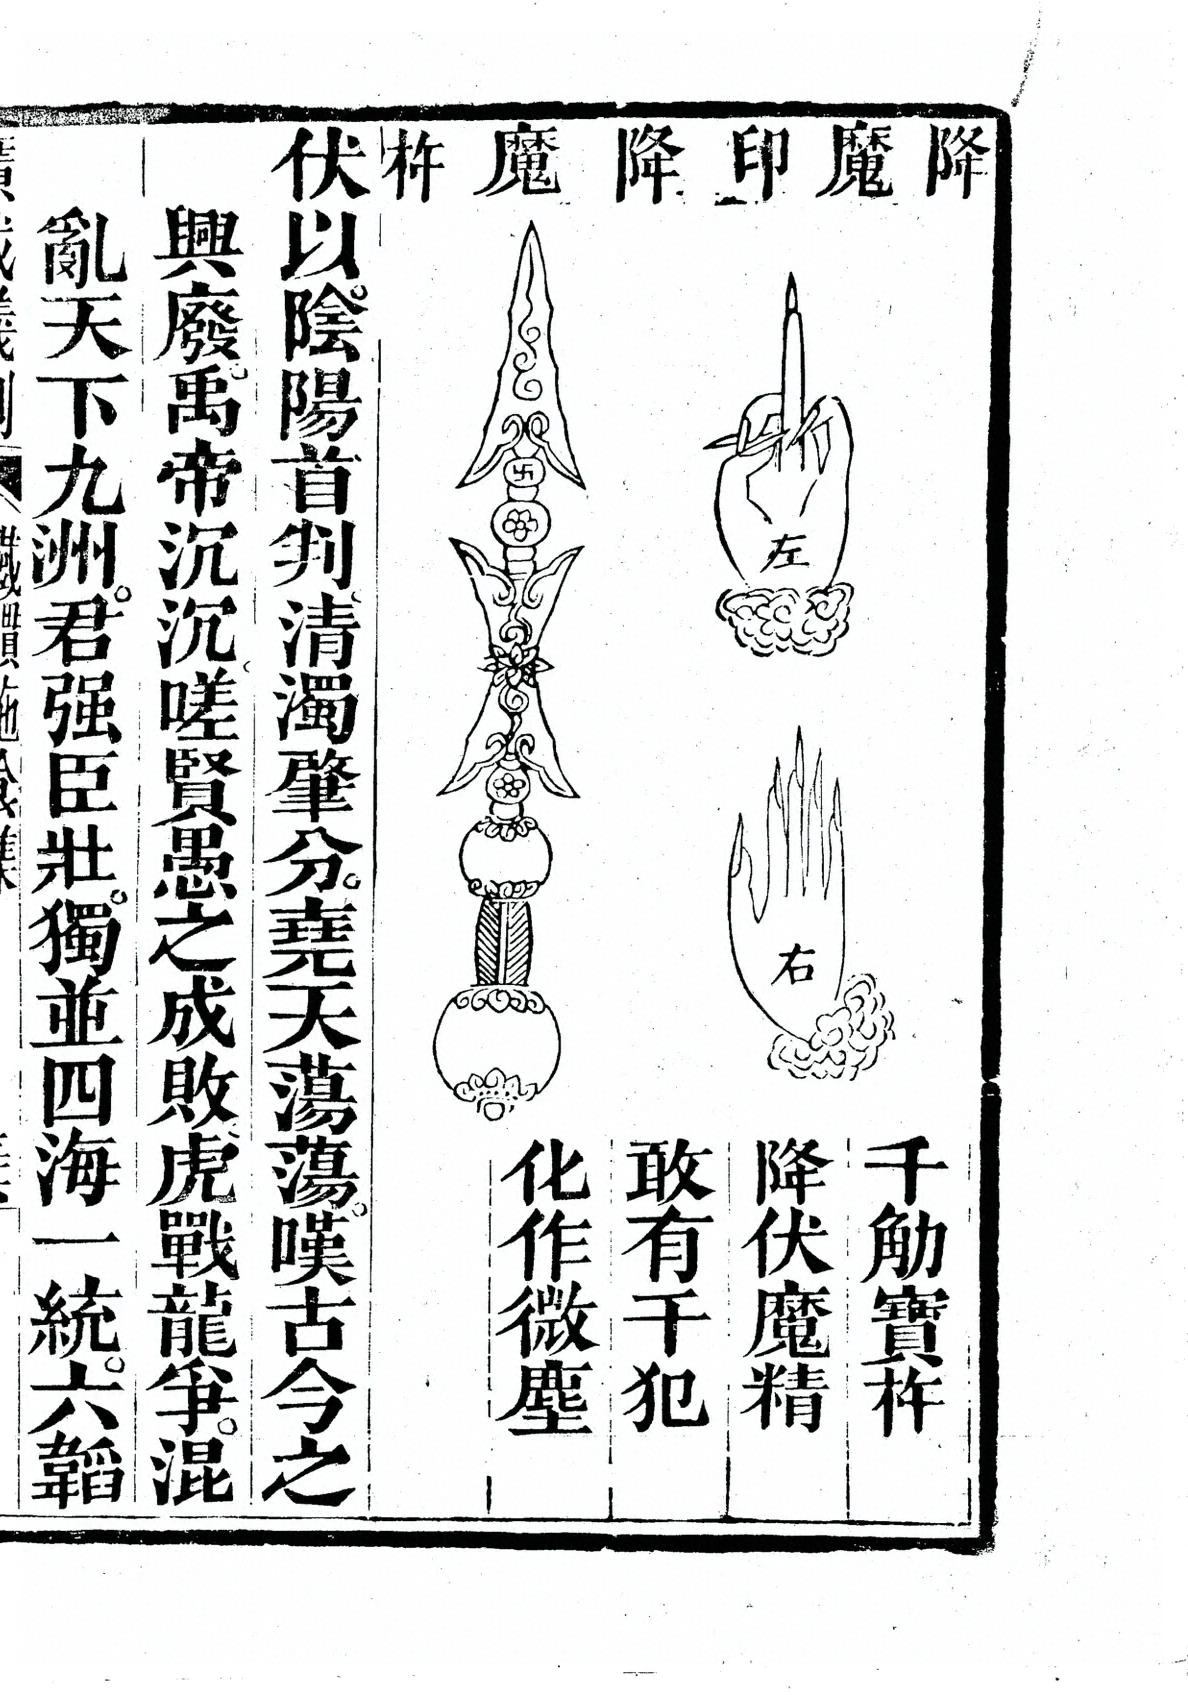 降魔印
降魔杵
左
右
千觔寶杵
降伏魔精
敢有干犯
化作微塵
伏以。陰陽首判。清濁肇分。堯天蕩蕩。嘆古今之
興廢。禹帝沉沉。嗟賢愚之成敗。虎戰龍爭。混
亂天下九洲。君强臣壯。獨並四海一統。六韜